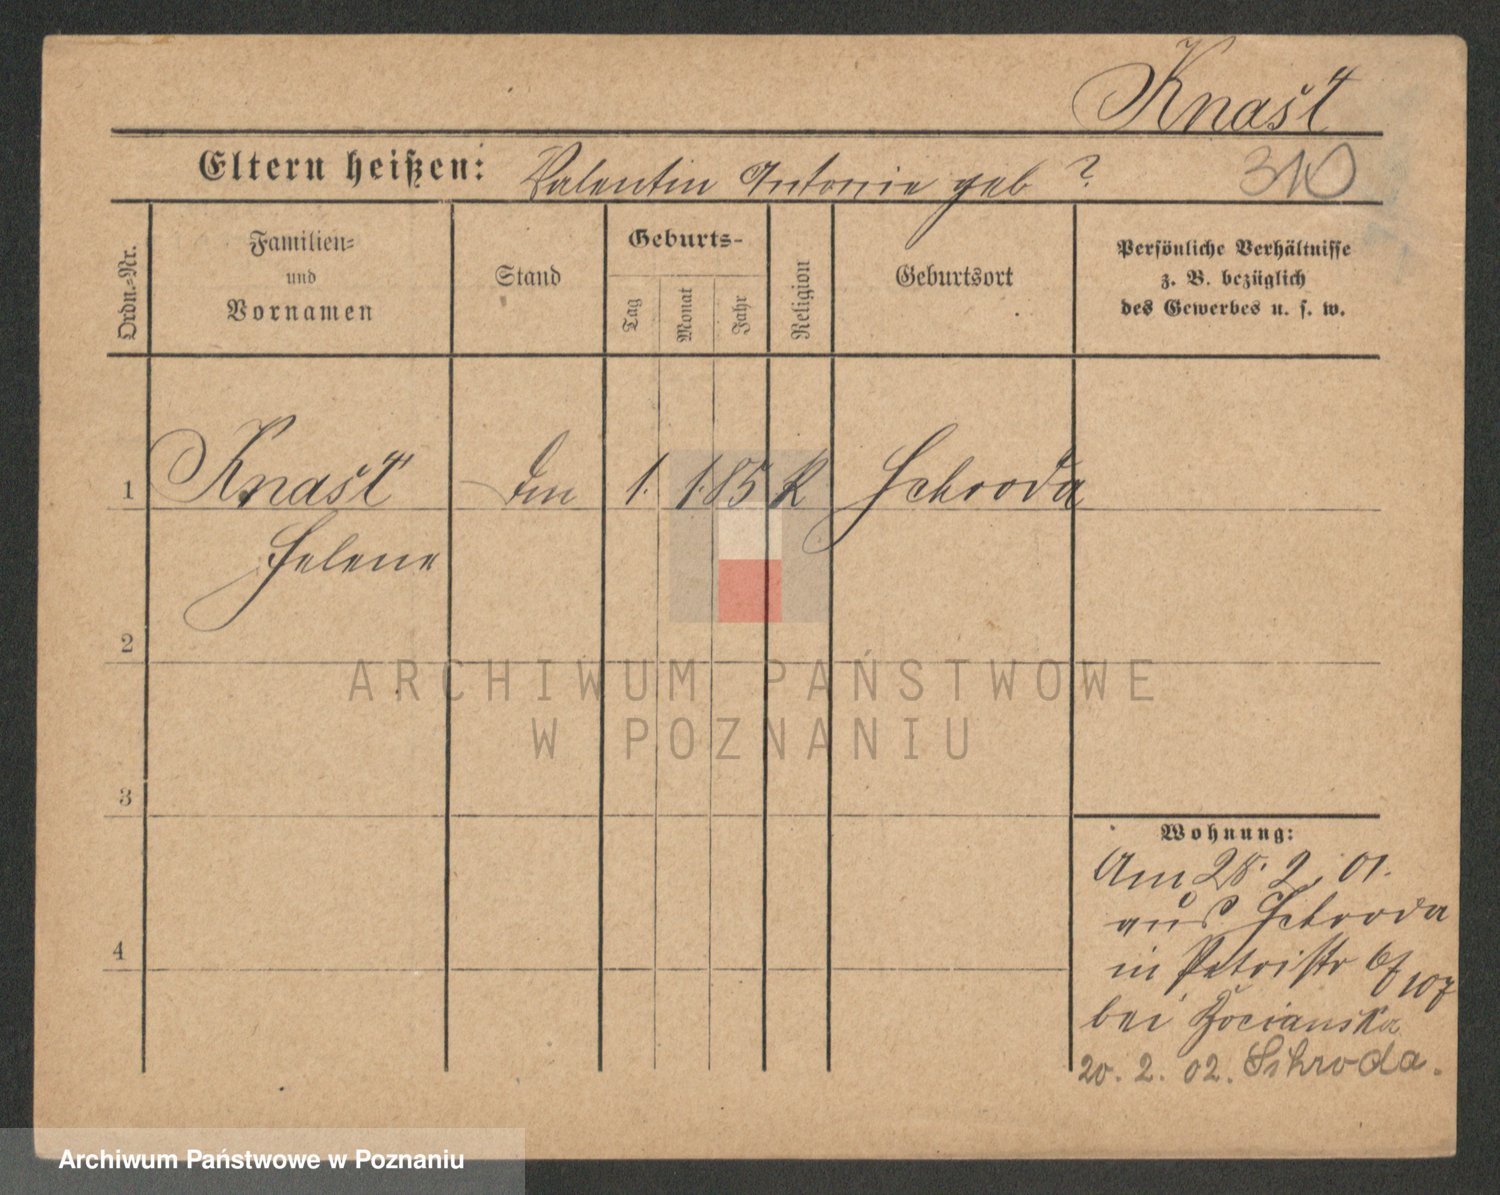 Knašt
Eltern heißen: Valentin Antonie geb ?
310
Ordn.-Nr.
Familien-
und
Vornamen
Stand
Geburts-
Tag
Monat
Jahr
Religion
Geburtsort
Persönliche Verhältnisse
z. B. bezüglich
des Gewerbes u. s. w.
1 Knašt 1. 1. 85 K Schroda
Helene
2
3
4
ARCHIWUM PAŃSTWOWE
W POZNANIU
Wohnung:
Am 28. 2. 01.
aus Schroda
in Petristr 6/107
bei Kocianska
20. 2. 02. Schroda.
Archiwum Państwowe w Poznaniu